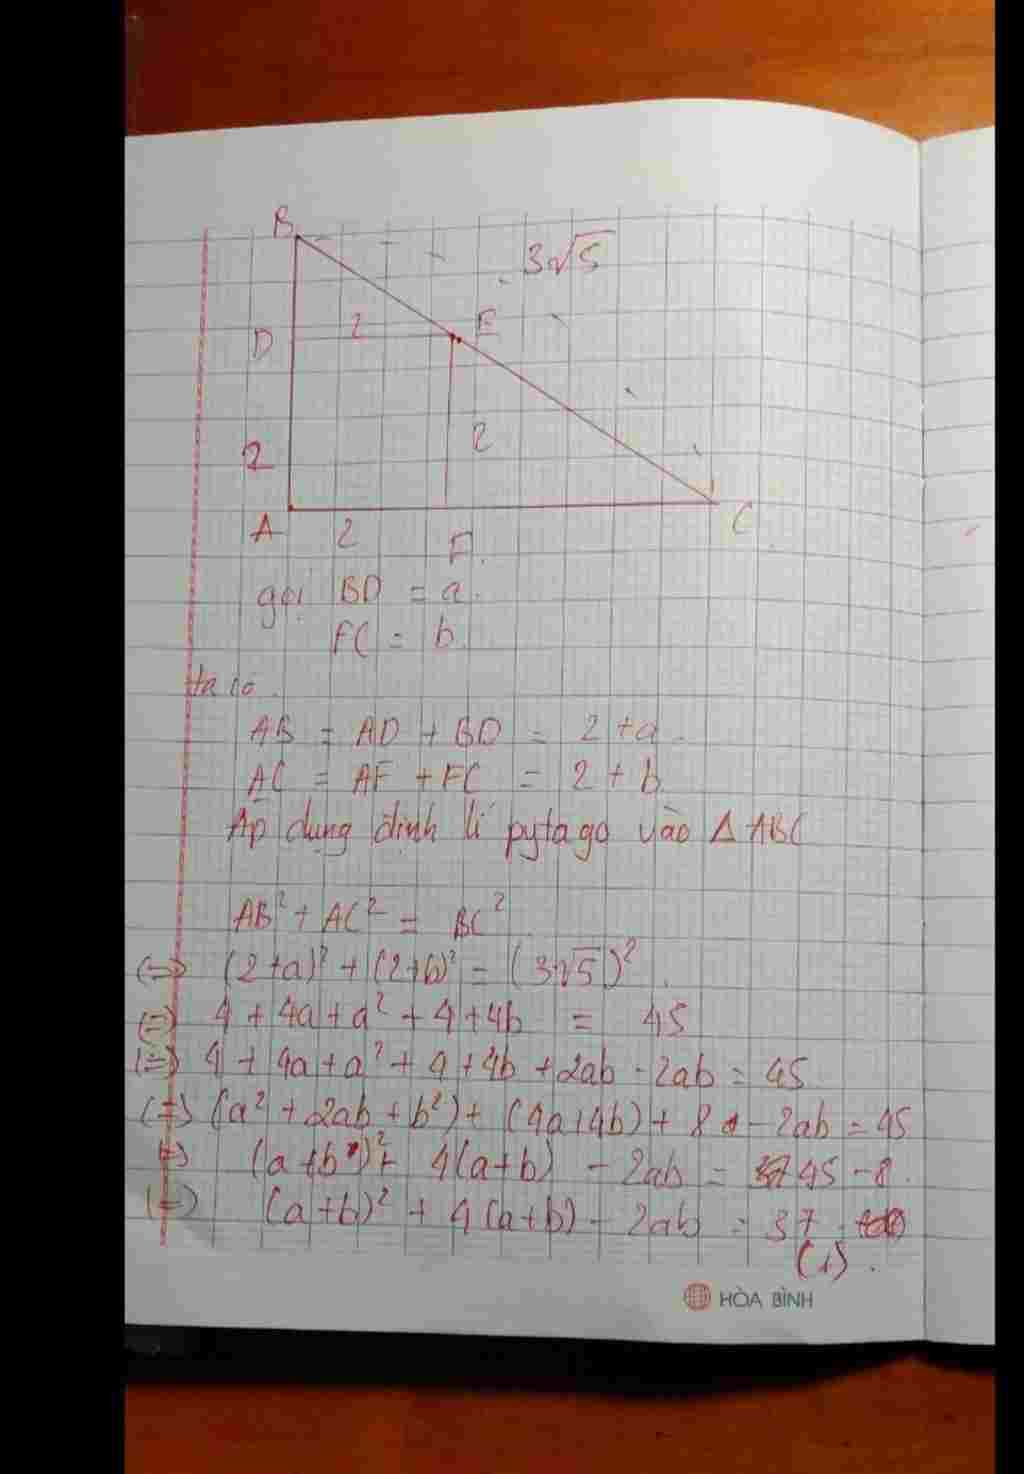 B
3√5
D 2 E
2
2
A 2 F. C
gọi BD = a.
FC = b.
ta có.
AB = AD + BD = 2 + a.
AC = AF + FC = 2 + b
Áp dụng định lí pytago vào Δ ABC
AB² + AC² = BC²
(=) (2+a)² + (2+b)² = (3√5)².
(=) 4 + 4a + a² + 4 + 4b = 45
(=) 4 + 4a + a² + 4 + 4b + 2ab - 2ab = 45
(=) (a² + 2ab + b²) + (4a+4b) + 8 - 2ab = 45
(=) (a+b)² + 4(a+b) - 2ab = 45 - 8.
(=) (a+b)² + 4(a+b) - 2ab = 37
(1).
HÒA BÌNH